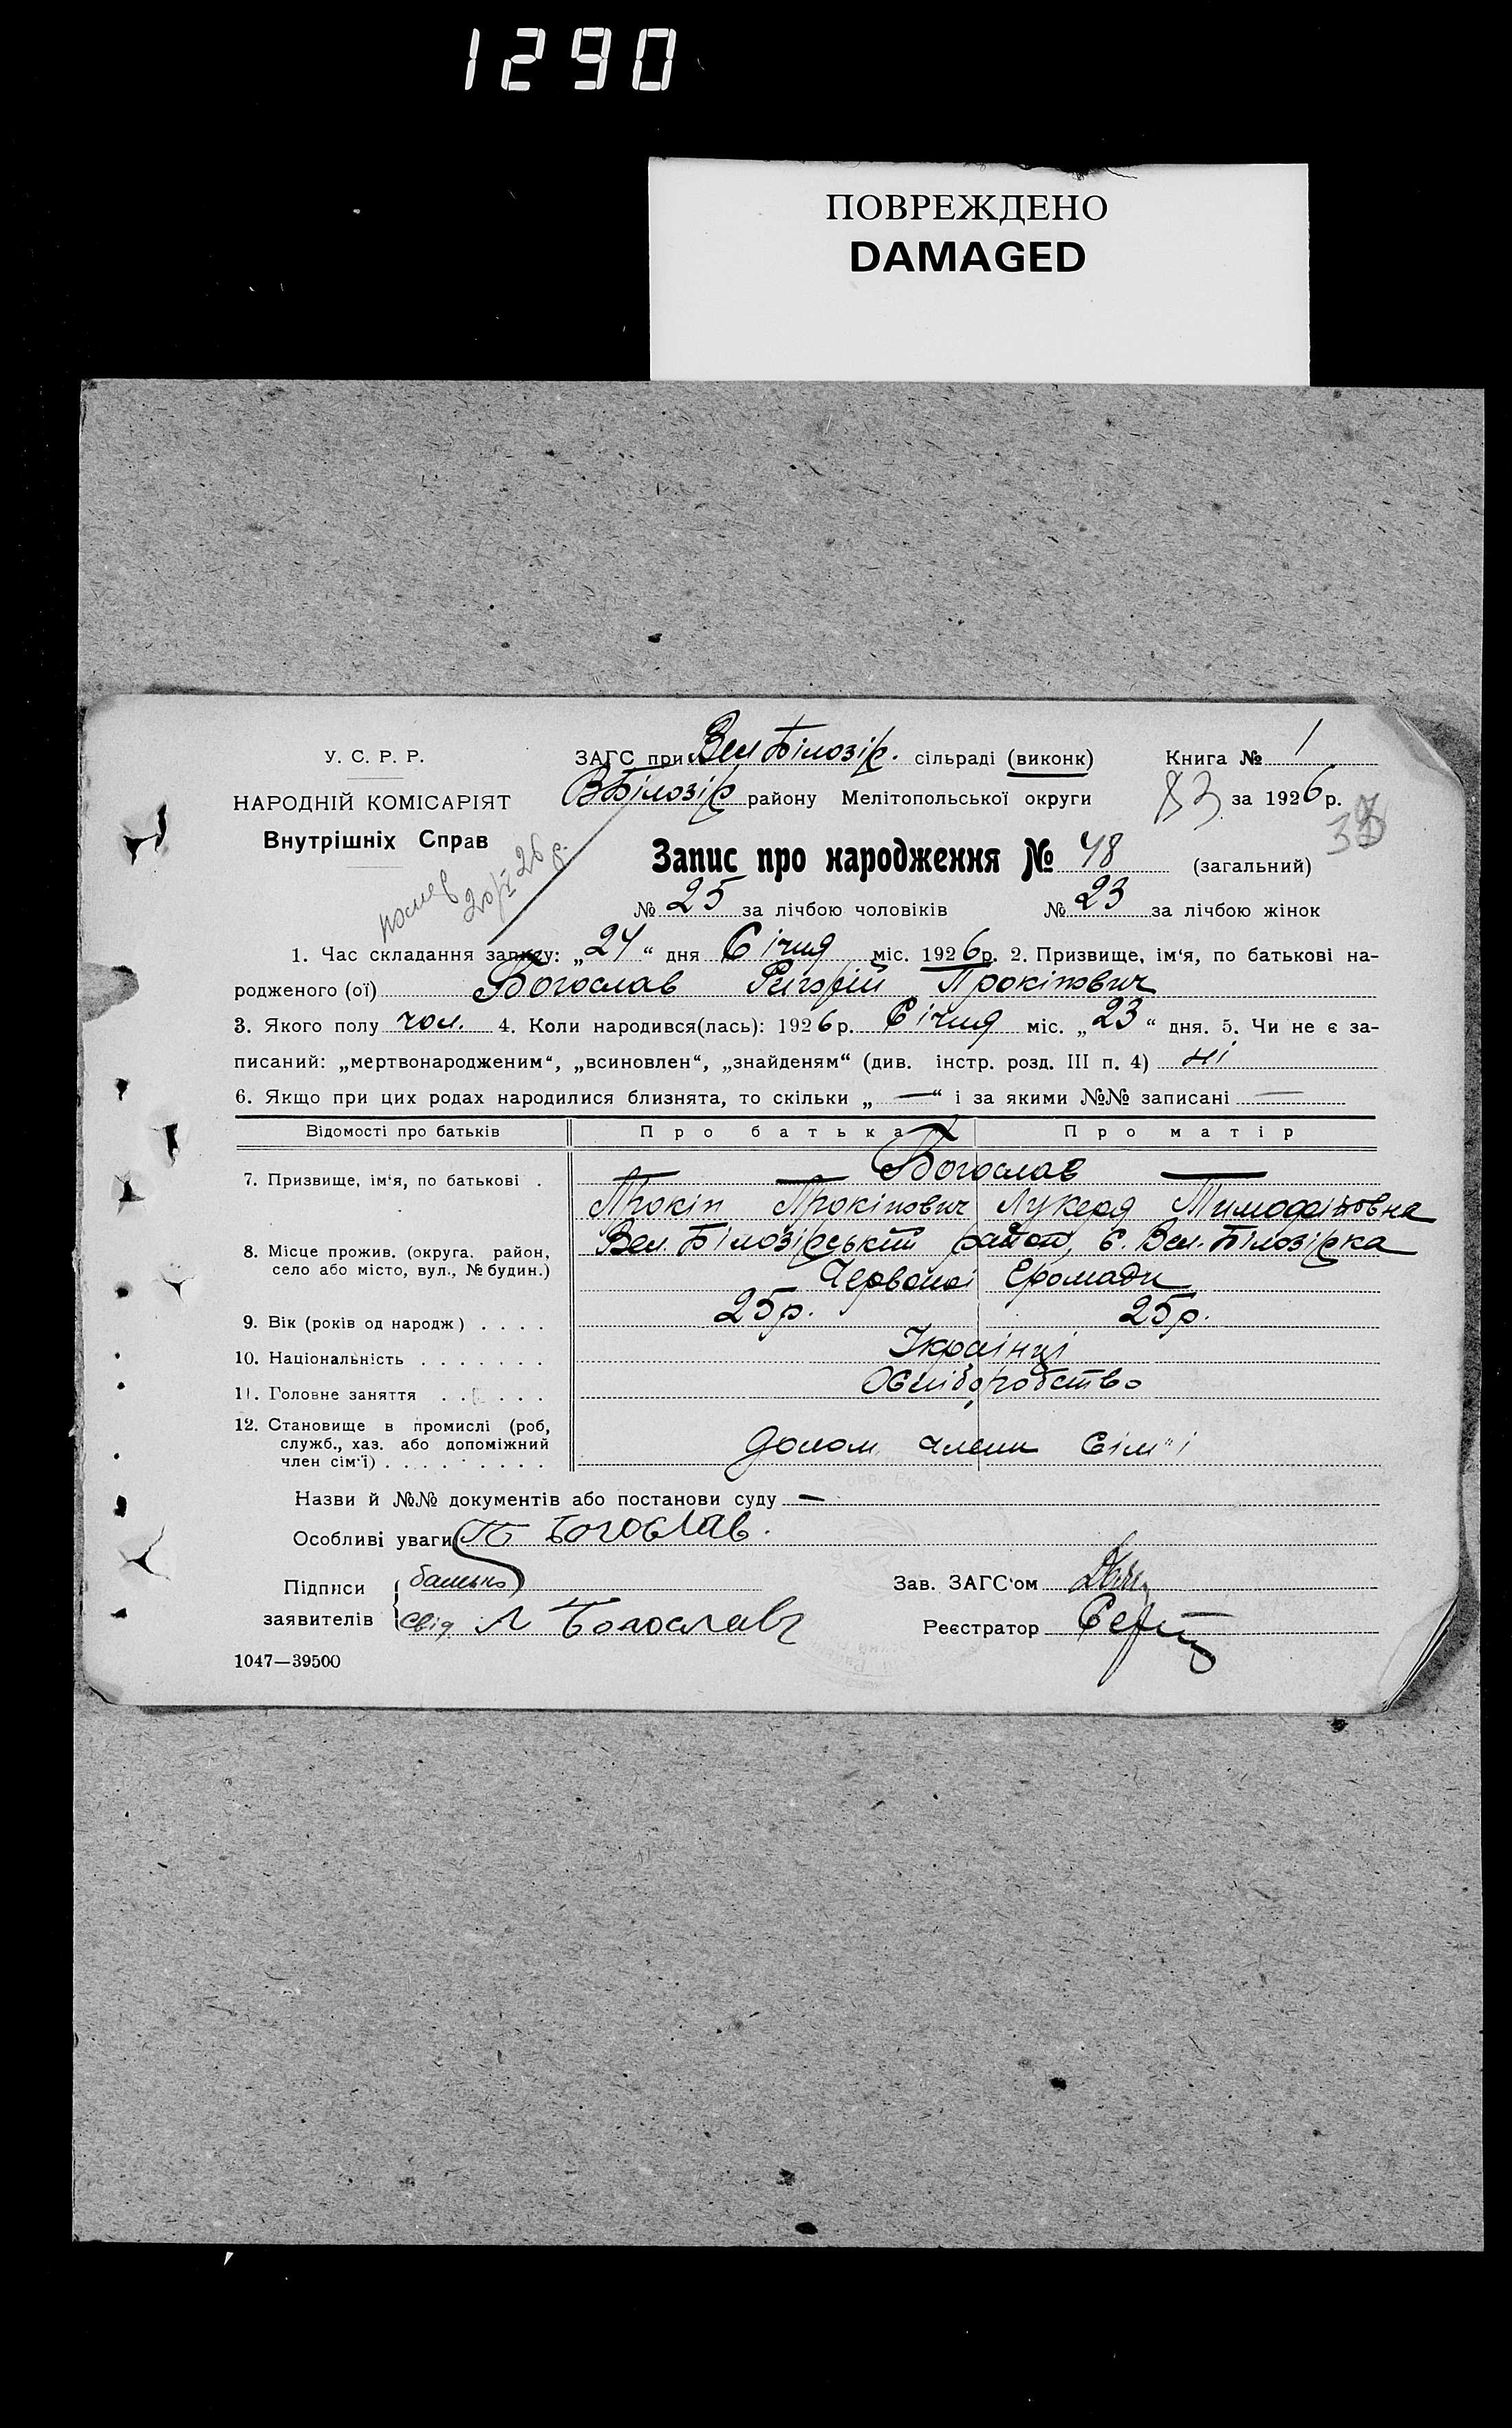 1290
ПОВРЕЖДЕНО
DAMAGED
У. С. Р. Р.
НАРОДНІЙ КОМІСАРІЯТ
Внутрішніх Справ
ЗАГС при Вел Білозір. сільраді (виконк)
В Білозір району Мелітопольської округи
Книга № 1
83 за 1926 р.
помер
Запис про народження № 48 (загальний)
№ 25 за лічбою чоловіків № 23 за лічбою жінок
1. Час складання запису: „24“ дня Січня міс. 1926 р. 2. Призвище, ім'я, по батькові на-
родженого (ої) Богослав Прокіпович
3. Якого полу чол. 4. Коли народився(лась): 1926 р. Січня міс. „23“ дня. 5. Чи не є за-
писаний: „мертвонародженим“, „всиновлен“, „знайденям“ (див. інстр. розд. III п. 4) ні
6. Якщо при цих родах народилися близнята, то скільки „—“ і за якими №№ записані —
Відомості про батьків Про батька Про матір
7. Призвище, ім'я, по батькові . Богослав
Прокіп Прокіпович Лукеря Тимофіївна
8. Місце прожив. (округа. район, село або місто, вул., № будин.) Вел. Білозірський район, с. Вел. Білозірка
Червоної Громади
9. Вік (років од народж) . . . . 25 р. 25 р.
10. Національність . . . . . . . Українці
11. Головне заняття . . . . . . Хліборобство
12. Становище в промислі (роб, служб., хаз. або допоміжний член сім'ї) . . . . . . . . . Допом члени сім'ї
Назви й №№ документів або постанови суду —
Особливі уваги П Богослав.
Підписи заявителів { батько
свід Л Богослав
Зав. ЗАГС'ом
Реєстратор
1047—39500